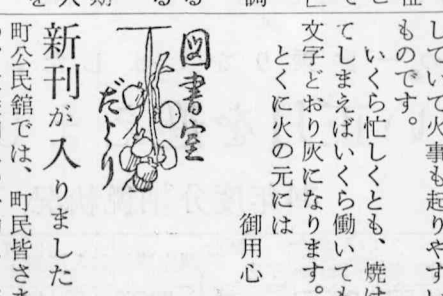 していて火事も起りやすい
ものです。
いくら忙しくとも、焼け
てしまえばいくら働いても
文字どおり灰になります。
とくに火の元には
御用心
図書室
だより
新刊が入りました
町公民館では、町民皆さま